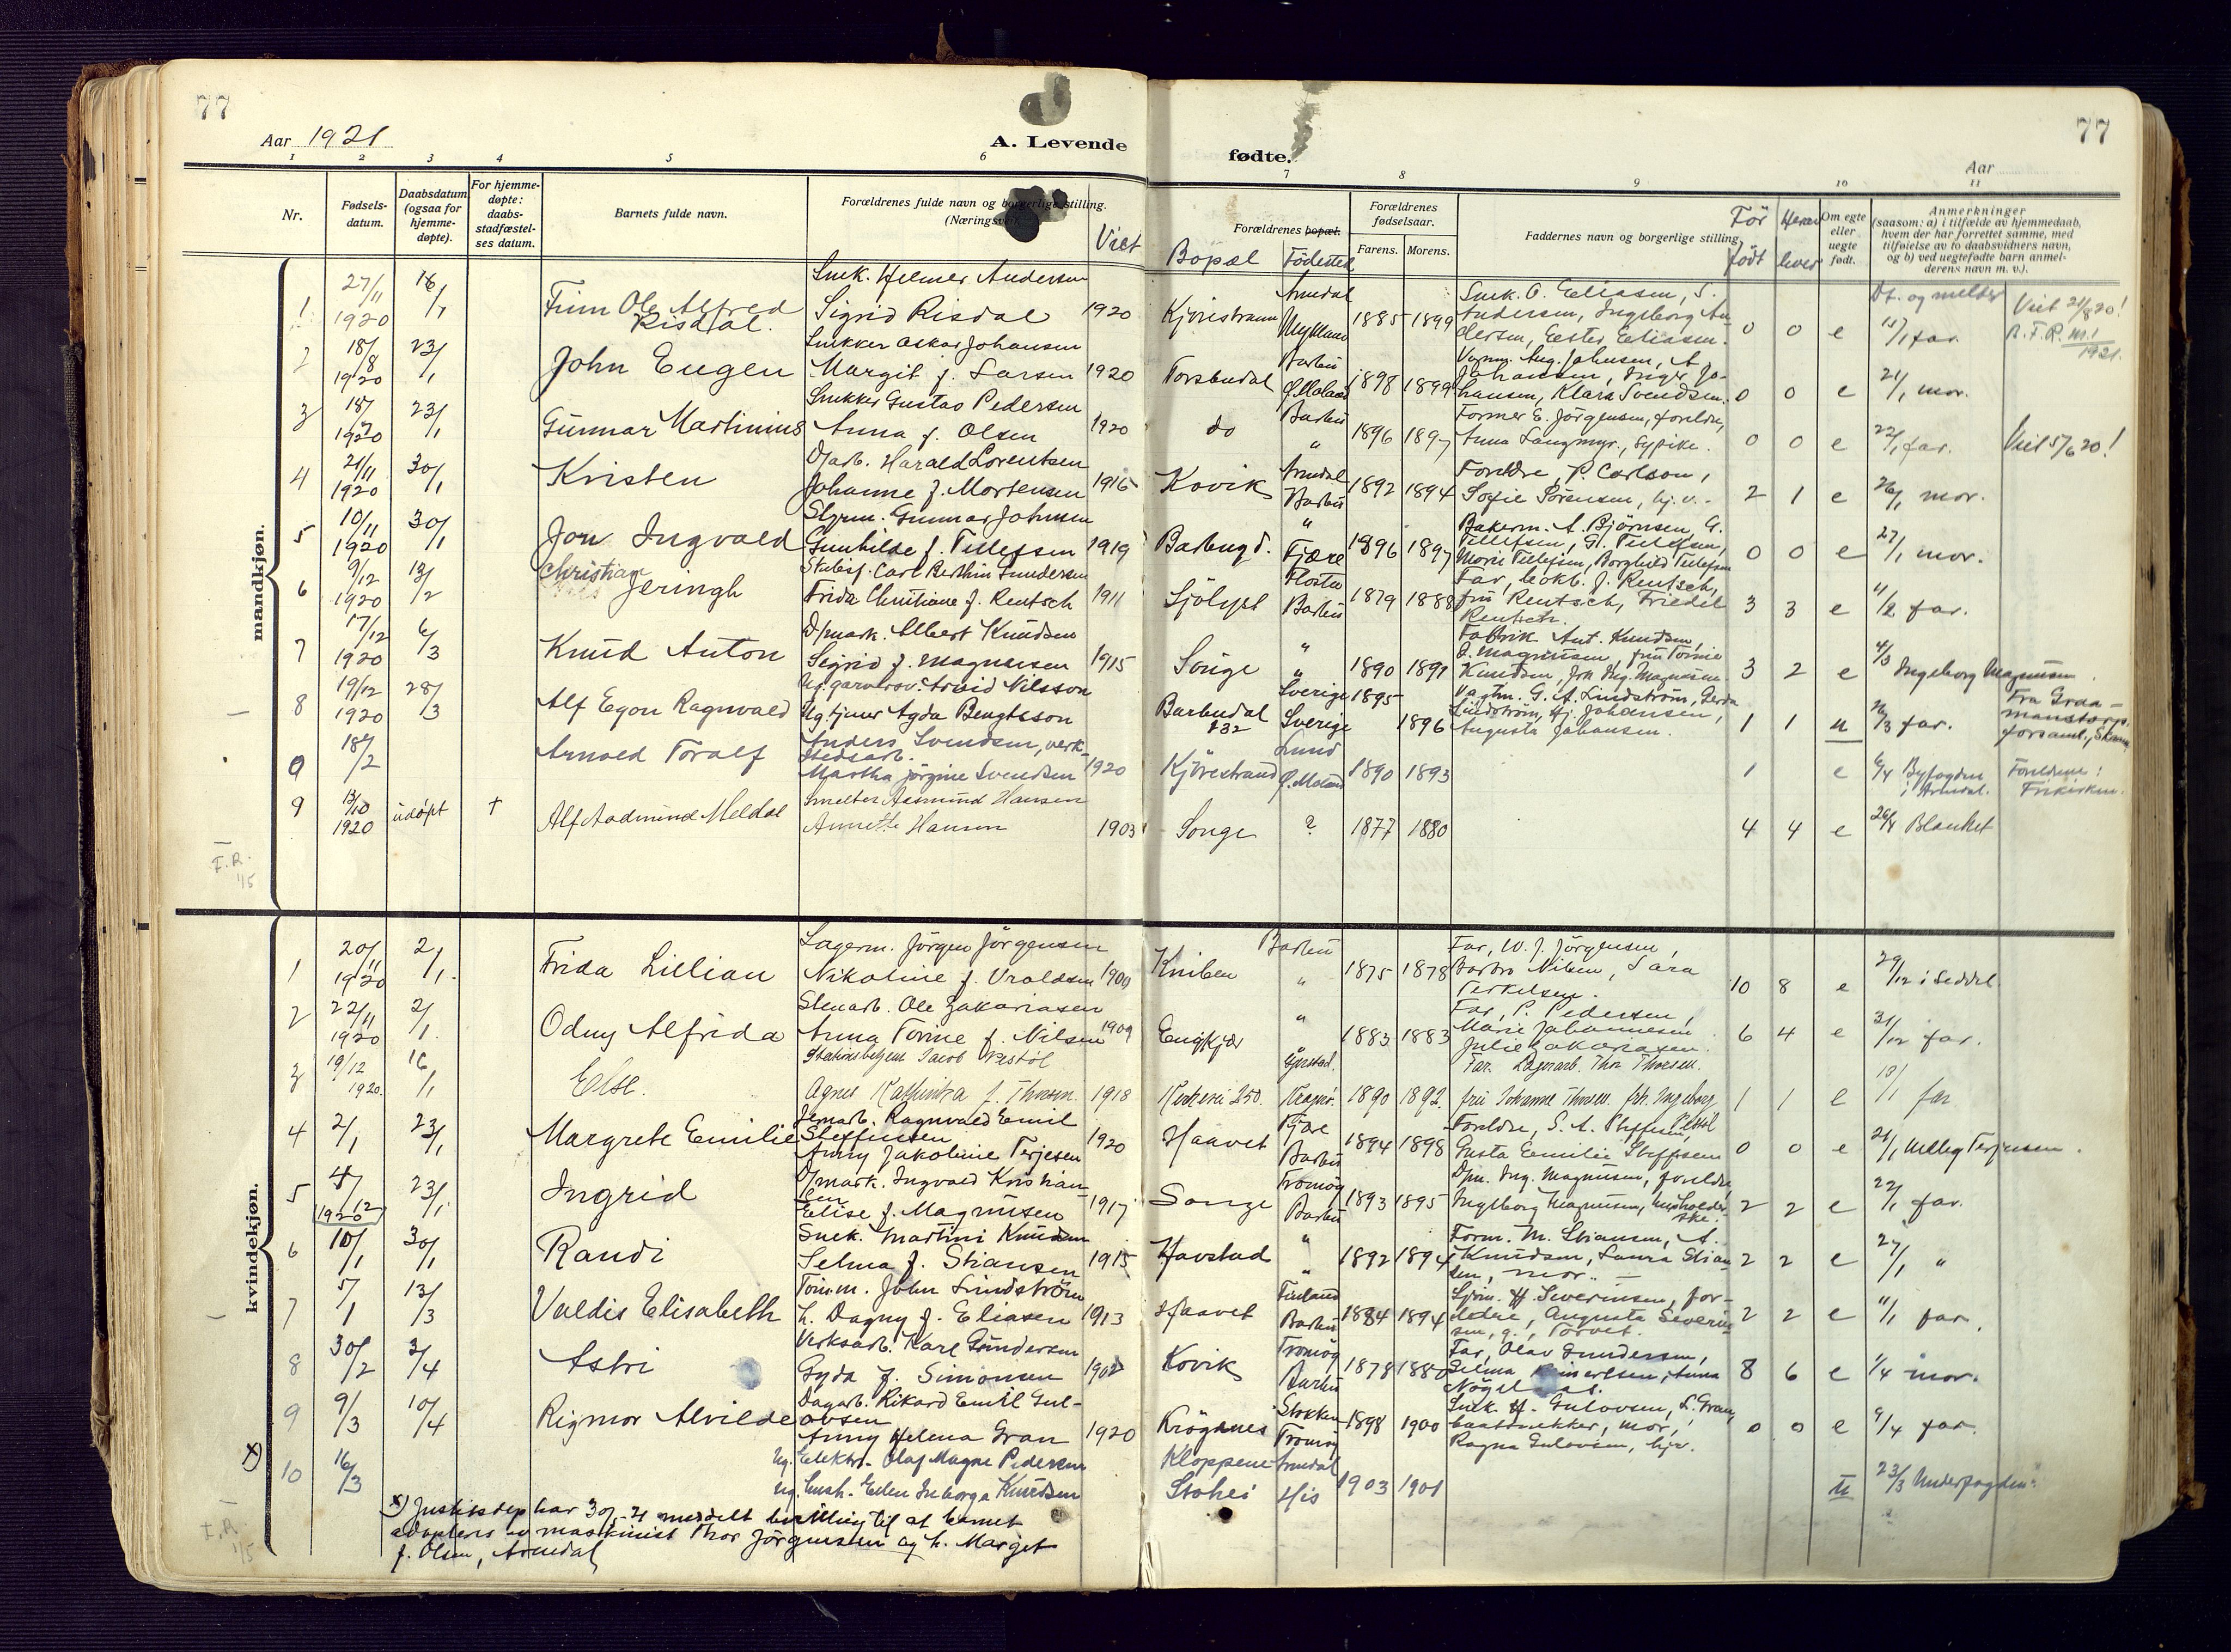 77
77
Aar 1921
A. Levende
fødte.
Aar
1 2 3 4 5 6 7 8 9 10 11
Nr.
Fødsels-
datum.
Daabsdatum
(ogsaa for
hjemme-
døpte).
For hjemme-
døpte:
daabs-
stadfæstel-
ses datum.
Barnets fulde navn.
Forældrenes fulde navn og borgerlige stilling.
(Næringsvei).
Viet
Forældrenes bopæl.
Bopæl Födested
Forældrenes
fødselsaar.
Farens. Morens.
Faddernes navn og borgerlige stilling
Før født
lever
Om egte
eller
uegte
født.
Anmerkninger
(saasom: a) i tilfælde av hjemmedaab,
hvem der har forrettet samme, med
tilføielse av to daabsvidners navn,
og b) ved uegtefødte barn anmel-
derens navn m. v.).
mandkjøn.
1 27/11 1920 16/1 Finn Ole Alfred Risdal.
Snek. Helmer Andersen
Sigrid Risdal 1920 Kjörrestrand Arendal 1885 1899
Andersen, Ingeborg An-
dersen, Ester Eliasen. 0 0 e far. Viet 21/8 20!
1921.
2 18/8 1920 23/1 John Eugen
Snekker Oskar Johansen
Margit f. Larsen 1920 Torsbudal Barbu Ö. Moland 1898 1899
Johansen, Inger Jo-
hansen, Klara Svendsen. 0 0 e 21/1 mor.
3 1920 23/1 Gunnar Martinius
Snekker Gustav Pedersen
Anna f. Olsen 1920 do Barbu " 1896 1897
Former E. Jörgensen, foreldre,
Anna Langmyr, sypike. 0 0 e 22/1 far. Viet 5/6 20!
4 21/11 1920 30/1 Kristen
D/arb. Harald Lorentsen
Johanne f. Mortensen 1916 Kovik Arendal Barbu 1892 1894
Foreldre, P. Carlson,
Sofie Sörensen, hj. v. 2 1 e 26/1 mor.
5 10/11 1920 30/1 Jon Ingvald
Styrm. Gunnar Johnsen
Gunhilde f. Tellefsen 1919 Barbugd. " Fjære 1896 1897
Bakerm. A. Björnsen, G.
Tellefsen, G. Tellefsen,
Marie Tellefsen, Borghild Tellefsen 0 0 e 27/1 mor.
6 9/12 1920 13/2 Christian Jeringh
Carl Berthin Gundersen
Frida Christiane f. Rentsch 1911 Sjölyst Flosta Barbu 1879 1888
Far, J. Rentsch,
fru Rentsch, Friedel
Rentsch. 3 3 e 11/2 far.
7 17/12 1920 6/3 Knud Anton
D/mask. Albert Knudsen
Sigrid f. Magnusen 1915 Songe " " 1890 1891
Fabrik Ant. Knudsen,
Magnusen, fru Tomine
Knudsen, frk Ing. Magnusen 3 2 e 4/3 Ingeborg Magnusen
8 19/12 1920 28/3 Alf Egon Ragnvald
Arvid Nilsson
Ug. tjener Agda Bengtsson Barbudal 132 Sverige Sverige 1895 1896
Vagtm. G. A. Lindström, Gerda
Lindström, Hj. Johansen,
Augusta Johansen. 1 1 u far. Fra Graa-
manstorps
forsaml., Skaane
9 18/2 Arnold Toralf
Anders Svendsen, verk-
stedsarb.
Martha Jörgine Svendsen 1920 Kjörrestrand Lund Ö. Moland 1890 1893
1 e Byfogden
i Arendal. Foreldrene:
Frikirken.
9 13/10 1920 udöpt † Alf Aadmund Meldal
Smelter Aasmund Hansen
Annette Hansen 1903 Songe ? 1877 1880 4 4 e 26/4 Blanket
F. R.
1/5
kvindekjøn.
1 20/11 1920 2/1. Frida Lillian
Lagerm. Jörgen Jörgensen
Nikoline f. Uraldsen 1900 Kniben Barbu " 1875 1878
Far, W. J. Jörgensen,
Barbro Nilsen, Sara
Terkelsen. 10 8 e 29/12 i Seddel.
2 22/11 1920 2/1. Odny Alfrida
Stenarb. Ole Zakariasen
Anna Tomine f. Nilsen 1909 Engkjær " 1883 1883
Far, P. Pedersen,
Marie Johannesen
Julie Zakariasen. 6 4 e 31/12 far.
3 19/12 1920. 16/1 Else.
Stationsbetjent Jacob Vestöl
Agnes Kathinka f. Thorsen 1918 250. Gjerstad. Kragerö. 1890 1892.
Far. Lagerarb. Thor Thorsen.
fru Johanne Thorsen. frk. Ingeborg
Vestöl 1 1 e far
4 2/1 23/1 Margrete Emilie
Jernarb. Ragnvald Emil
Steffensen
Anny Jakoline Terjesen 1920 Haavet Fjære Barbu 1894 1898
Foreldre, S. A. Steffensen,
Gusta Emilie Steffensen 0 0 e 21/1 Terjesen.
5 1920 23/1 Ingrid
D/mask. Ingvald Kristian-
sen
Elise f. Magnusen 1917 Songe Tromöy Barbu 1893 1895
Dpm. Ing. Magnusen, foreldre,
Ingeborg Magnusen, husholder-
ske. 2 2 e 22/1 far.
6 10/1 30/1 Randi
Snek. Martini Knudsen
Selma f. Stiansen 1915 Havstad " " 1892 1894
Form. M. Stiansen, A.
Knudsen, Laura Stian-
sen, mor. 2 2 e 27/1 "
7 5/1 13/3 Valdis Elisabeth
Tömm. John Lindström
h. Dagny f. Eliasen 1913 Haavet Finland Barbu 1884 1894
Sjöm. H. Severinsen, for-
eldre, Augusta Severin-
sen, g., Torvet. 2 2 e far.
8 30/2 3/4 Astri
Verksarb. Karl Gundersen
Gyda f. Simonsen 1902 Kovik Tromöy Barbu 1878 1880
Far, Olav Gundersen,
Selma Anna 8 6 e 1/4 mor.
9 9/3 10/4 Rigmor Alvilde
Dagarb. Rikard Emil Gul-
ovsen
Anny Helena Gran 1920 Krögenes Stokken Tromöy 1898 1900
Snek. H. Gulovsen, S. Gran,
baatsnekker, mor,
Ragna Gulovsen, hjv. 0 0 e 9/4 far.
x) 10 16/3
Ug. Elektr. Olaf Magne Pedersen
ug. Ellen Inborga Knudsen Kloppene Stohei Arendal His 1903 1901 u 23/3 Underfogden
x) Justitsdep har 30/5-21 meddelt bevilling til at barnet
adopteres av maskinist Thor Jörgensen og h. Marget
f. Olsen, Arendal
F. R.
1/5